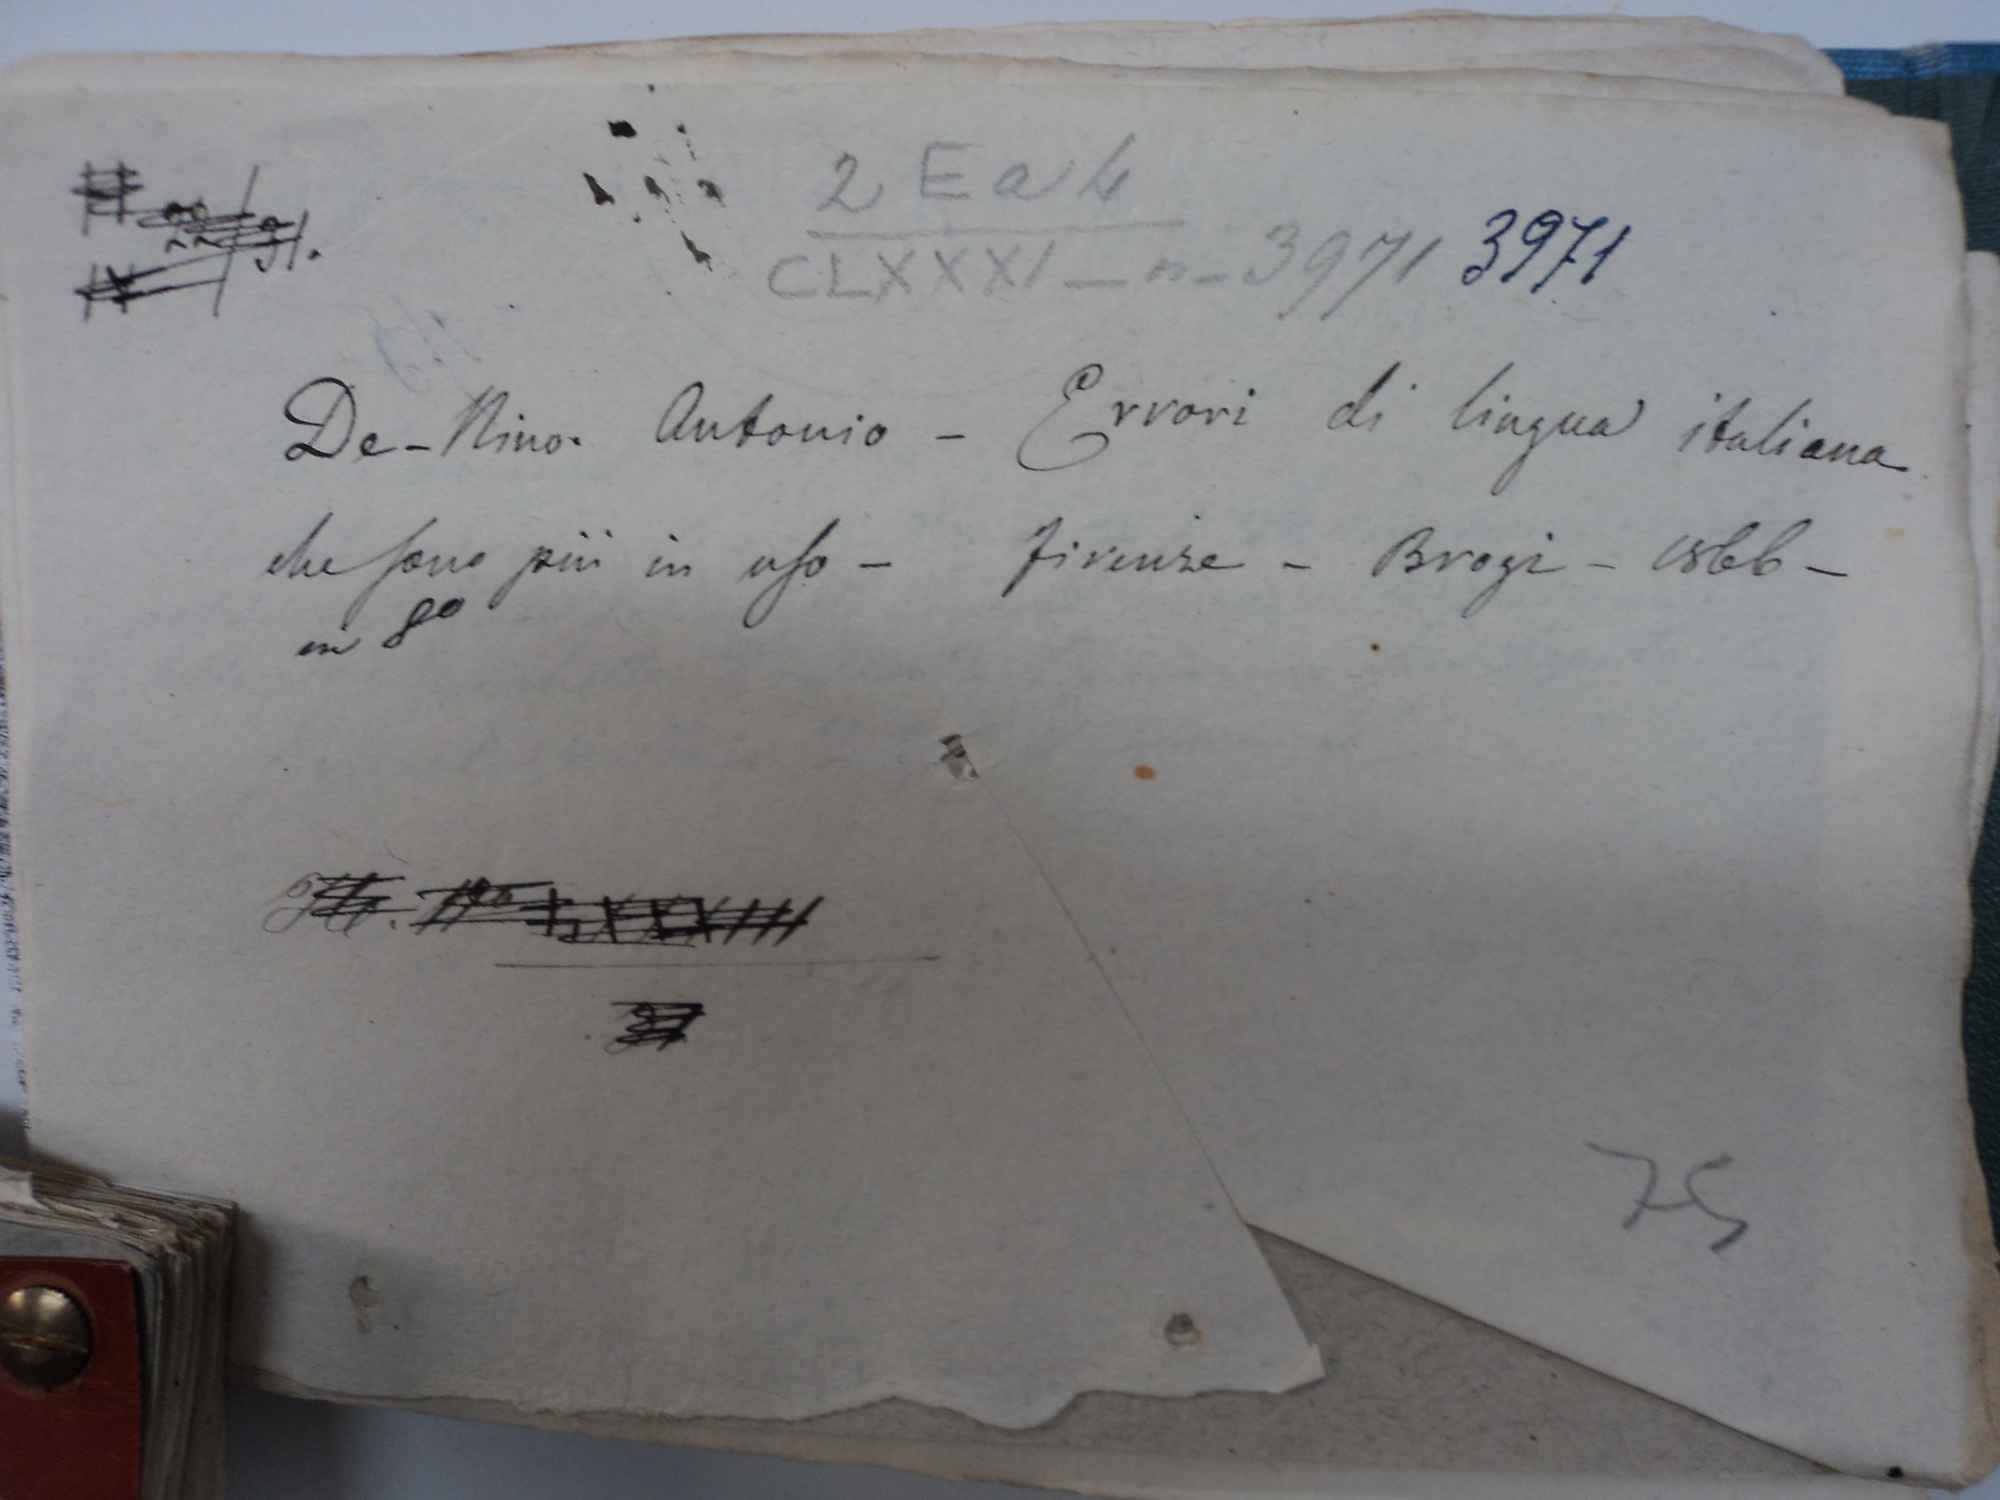 2 E a 4
CLXXXI - n - 3971 3971
De-Nino. Antonio - Errori di lingua italiana
che sono più in uso - Firenze - Brogi - 1866 -
in 8º
75